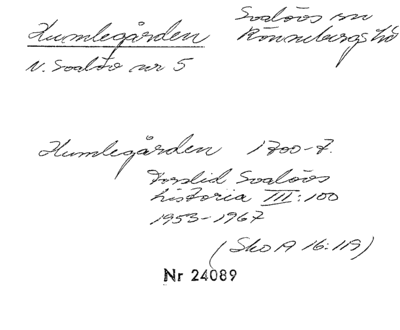 Humlegården
Svalövs sn
Rönnebergs hd
N. Svalöv nr 5
Humlegården 1700-t.
Forslid Svalövs
historia III:100
1953-1967
(Sko A 16:119)
Nr 24089